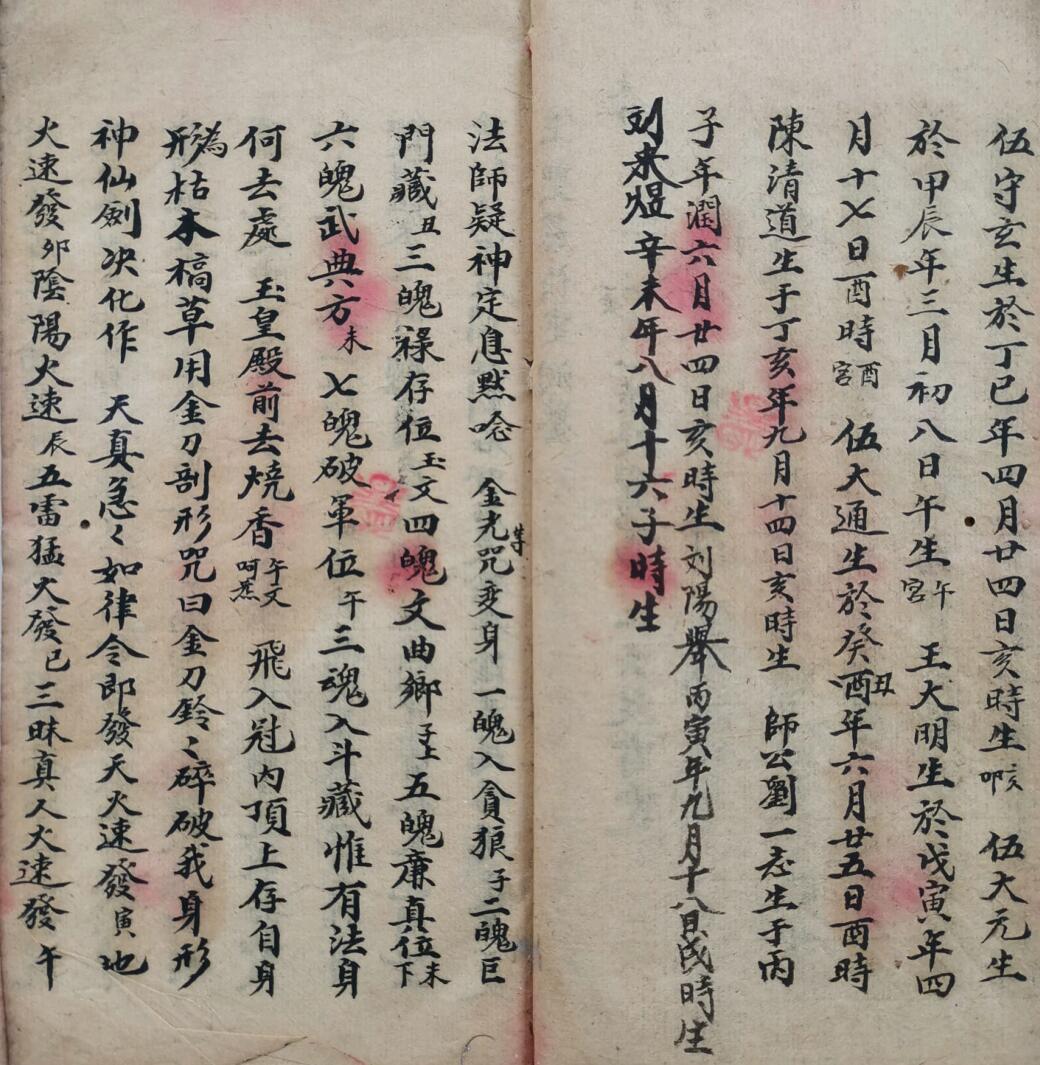 伍守玄生於丁巳年四月廿四日亥時生 伍大元生
於甲辰年三月初八日午生午宮 王大明生於戊寅年四
月十七日酉時酉宮 伍大通生於癸酉丑年六月廿五日酉時
陳清道生于丁亥年九月十四日亥時生 師公劉一志生于丙
子年潤六月廿四日亥時生 刘陽舉丙寅年九月十八日戌時生
刘来煜辛未年八月十六子時生
法師疑神定息默唸 金光咒等变身 一魄入貪狼子二魄巨
門藏丑三魄祿存位玉文四魄文曲鄉五魄廉真位未下
六魄武典方未 七魄破軍位午三魂入斗藏惟有法身
何去處 玉皇殿前去燒香午文 飛入冠内頂上存自身
形為枯木槁草用金刀剖形咒曰金刀鈴〻碎破我身形
神仙劍决化作 天真急〻如律令即發天火速發寅地
火速發卯陰陽火速辰五雷猛火發巳三昧真人火速發午